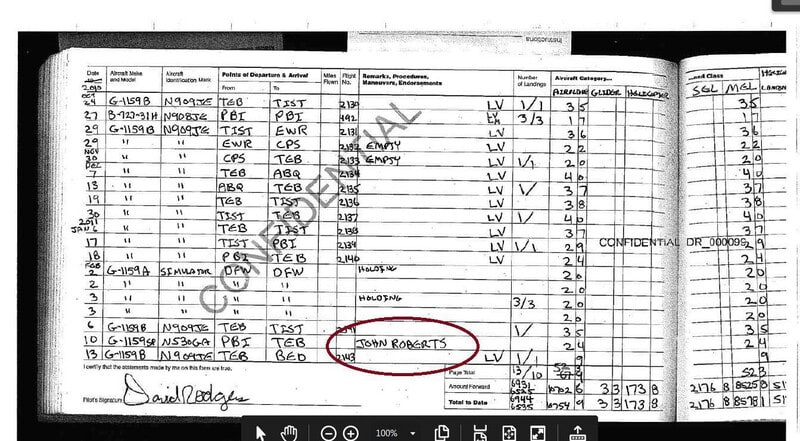 Instructions
Date
Aircraft Make and Model
Aircraft Identification Mark
Points of Departure & Arrival
From To
Miles Flown
Flight No.
Remarks, Procedures, Maneuvers, Endorsements
Number of Landings
Aircraft Category...
AIRPLANE GLIDER HELICOPTER
...and Class
SEL MEL
2010
OCT
24 G-1159B N909JE TEB TIST 2130 LV 1/1 3 5 3 5
27 B-727-31H N908JE PBI PBI 492 3/3 1 7 1 7
29 G-1159B N909JE TIST EWR 2131 LV 3 6 3 6
29 " " EWR CPS 2132 EMPTY 2 2 2 2
NOV
30 " " CPS TEB 2133 EMPTY LV 1/1 2 0 2 0
DEC
7 " " TEB ABQ 2134 LV 4 0 4 0
13 " " ABQ TEB 2135 LV 1/ 3 7 3 7
19 " " TEB TIST 2136 LV 3 8 3 8
30 " " TIST TEB 2137 LV 1/ 4 0 4 0
2011
JAN 6 " " TEB TIST 2138 LV 3 7 3 7
17 " " TIST PBI 2139 LV 1/1 2 9 2 9
18 " " PBI TEB 2140 LV 2 4 2 4
FEB
2 G-1159A SIMULATOR DFW DFW HOLDING 2 0 2 0
2 " " " " 2 0 2 0
3 " " " " HOLDING 2 0 2 0
3 " " " " 3/3 2 0 2 0
6 G-1159B N909JE TEB TIST 1/ 3 5 3 5
10 G-1159SP N530GA PBI TEB JOHN ROBERTS 2 4 2 4
13 G-1159B N909JE TEB BED 2143 LV 1/1 9 9
CONFIDENTIAL
CONFIDENTIAL DR_000099
I certify that the statements made by me on this form are true.
Pilot's Signature David Rodgers
Page Total 13/10 52 3 52 3
Amount Forward 6931 6525 10702 6 3 3 173 8 2176 8 8525 8
Total to Date 6944 6535 10754 9 3 3 173 8 2176 8 8578 1
100%